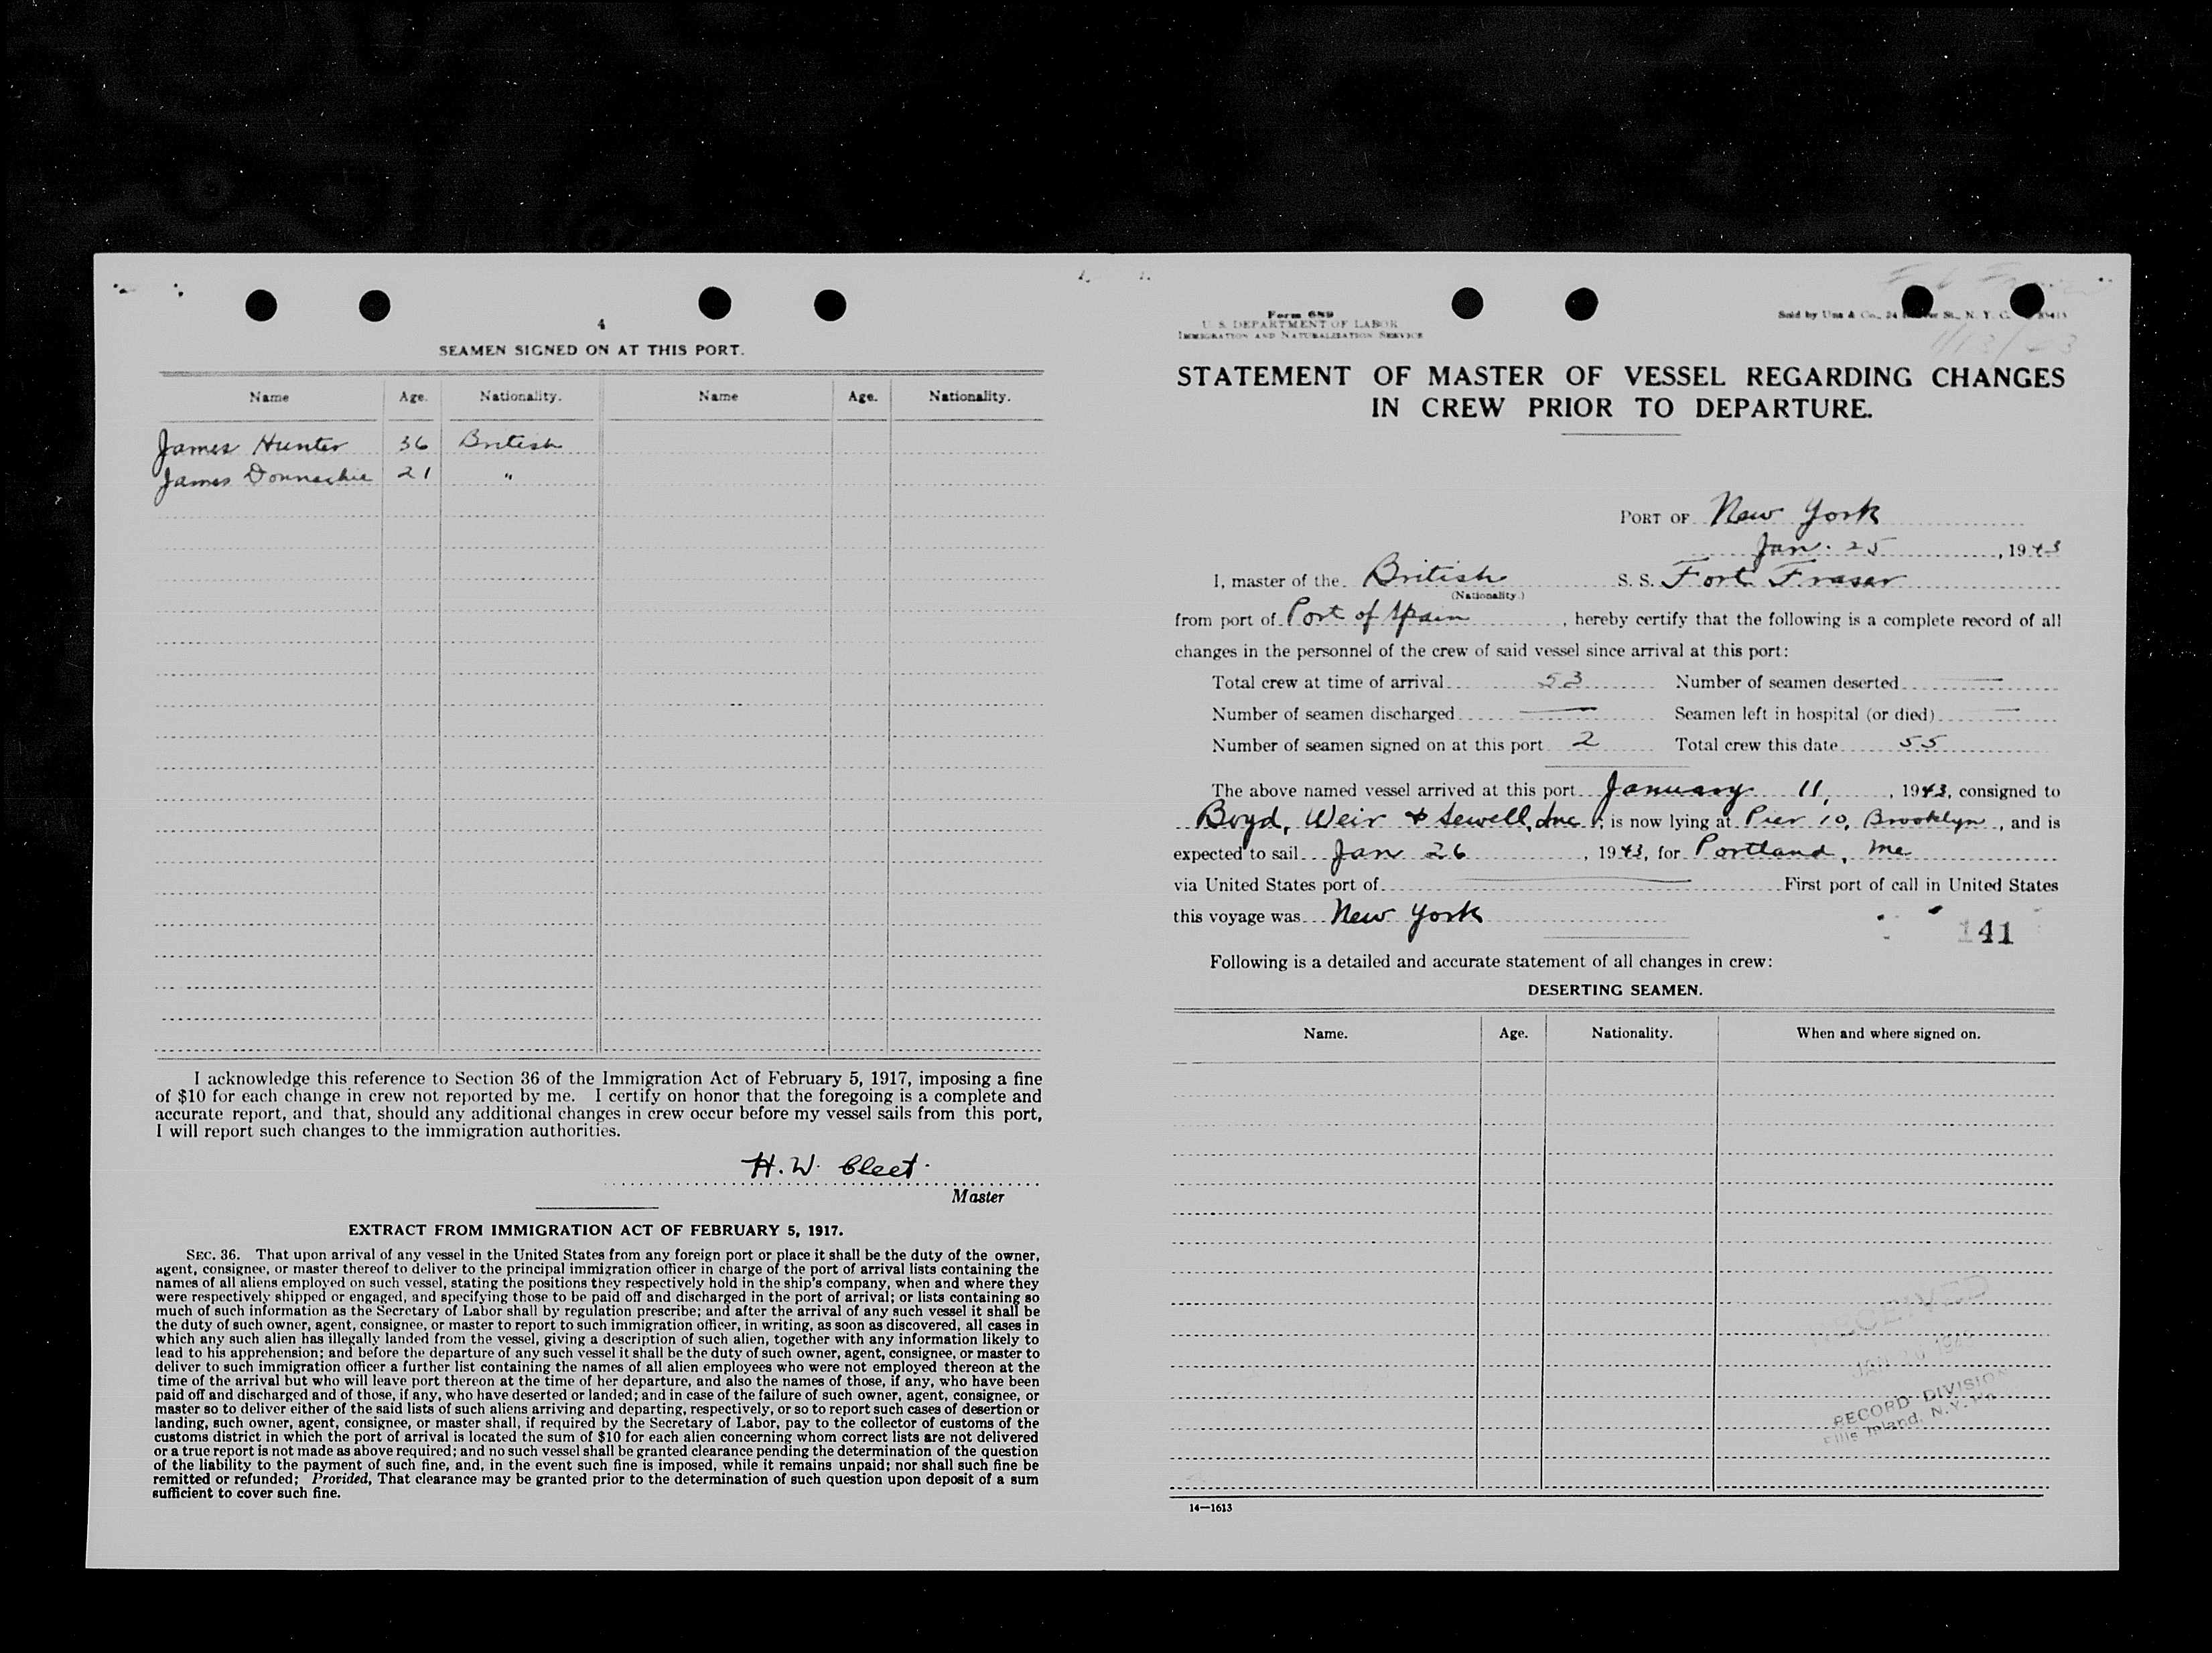 4
SEAMEN SIGNED ON AT THIS PORT.
Name Age. Nationality. Name Age. Nationality.
James Hunter 36 British
James Donnachie 21 "
I acknowledge this reference to Section 36 of the Immigration Act of February 5, 1917, imposing a fine
of $10 for each change in crew not reported by me. I certify on honor that the foregoing is a complete and
accurate report, and that, should any additional changes in crew occur before my vessel sails from this port,
I will report such changes to the immigration authorities.
H. W. Cleet.
Master
EXTRACT FROM IMMIGRATION ACT OF FEBRUARY 5, 1917.
SEC. 36. That upon arrival of any vessel in the United States from any foreign port or place it shall be the duty of the owner,
agent, consignee, or master thereof to deliver to the principal immigration officer in charge of the port of arrival lists containing the
names of all aliens employed on such vessel, stating the positions they respectively hold in the ship's company, when and where they
were respectively shipped or engaged, and specifying those to be paid off and discharged in the port of arrival; or lists containing so
much of such information as the Secretary of Labor shall by regulation prescribe; and after the arrival of any such vessel it shall be
the duty of such owner, agent, consignee, or master to report to such immigration officer, in writing, as soon as discovered, all cases in
which any such alien has illegally landed from the vessel, giving a description of such alien, together with any information likely to
lead to his apprehension; and before the departure of any such vessel it shall be the duty of such owner, agent, consignee, or master to
deliver to such immigration officer a further list containing the names of all alien employees who were not employed thereon at the
time of the arrival but who will leave port thereon at the time of her departure, and also the names of those, if any, who have been
paid off and discharged and of those, if any, who have deserted or landed; and in case of the failure of such owner, agent, consignee, or
master so to deliver either of the said lists of such aliens arriving and departing, respectively, or so to report such cases of desertion or
landing, such owner, agent, consignee, or master shall, if required by the Secretary of Labor, pay to the collector of customs of the
customs district in which the port of arrival is located the sum of $10 for each alien concerning whom correct lists are not delivered
or a true report is not made as above required; and no such vessel shall be granted clearance pending the determination of the question
of the liability to the payment of such fine, and, in the event such fine is imposed, while it remains unpaid; nor shall such fine be
remitted or refunded; Provided, That clearance may be granted prior to the determination of such question upon deposit of a sum
sufficient to cover such fine.
Form 689
U. S. DEPARTMENT OF LABOR
IMMIGRATION AND NATURALIZATION SERVICE
Sold by Unz & Co., 24 St., N. Y. C.
STATEMENT OF MASTER OF VESSEL REGARDING CHANGES
IN CREW PRIOR TO DEPARTURE.
PORT OF New York
Jan. 25, 1943
I, master of the British S. S. Fort Fraser
(Nationality.)
from port of Port of Spain, hereby certify that the following is a complete record of all
changes in the personnel of the crew of said vessel since arrival at this port:
Total crew at time of arrival 53 Number of seamen deserted —
Number of seamen discharged — Seamen left in hospital (or died) —
Number of seamen signed on at this port 2 Total crew this date 55
The above named vessel arrived at this port January 11, 1943, consigned to
Boyd, Weir & Sewell, Inc; is now lying at Pier 10, Brooklyn, and is
expected to sail Jan 26, 1943, for Portland, Me
via United States port of — First port of call in United States
this voyage was New York
141
Following is a detailed and accurate statement of all changes in crew:
DESERTING SEAMEN.
Name. Age. Nationality. When and where signed on.
RECEIVED
JAN 26 194
RECORD DIVISION
Ellis Island, N. Y.
14—1613